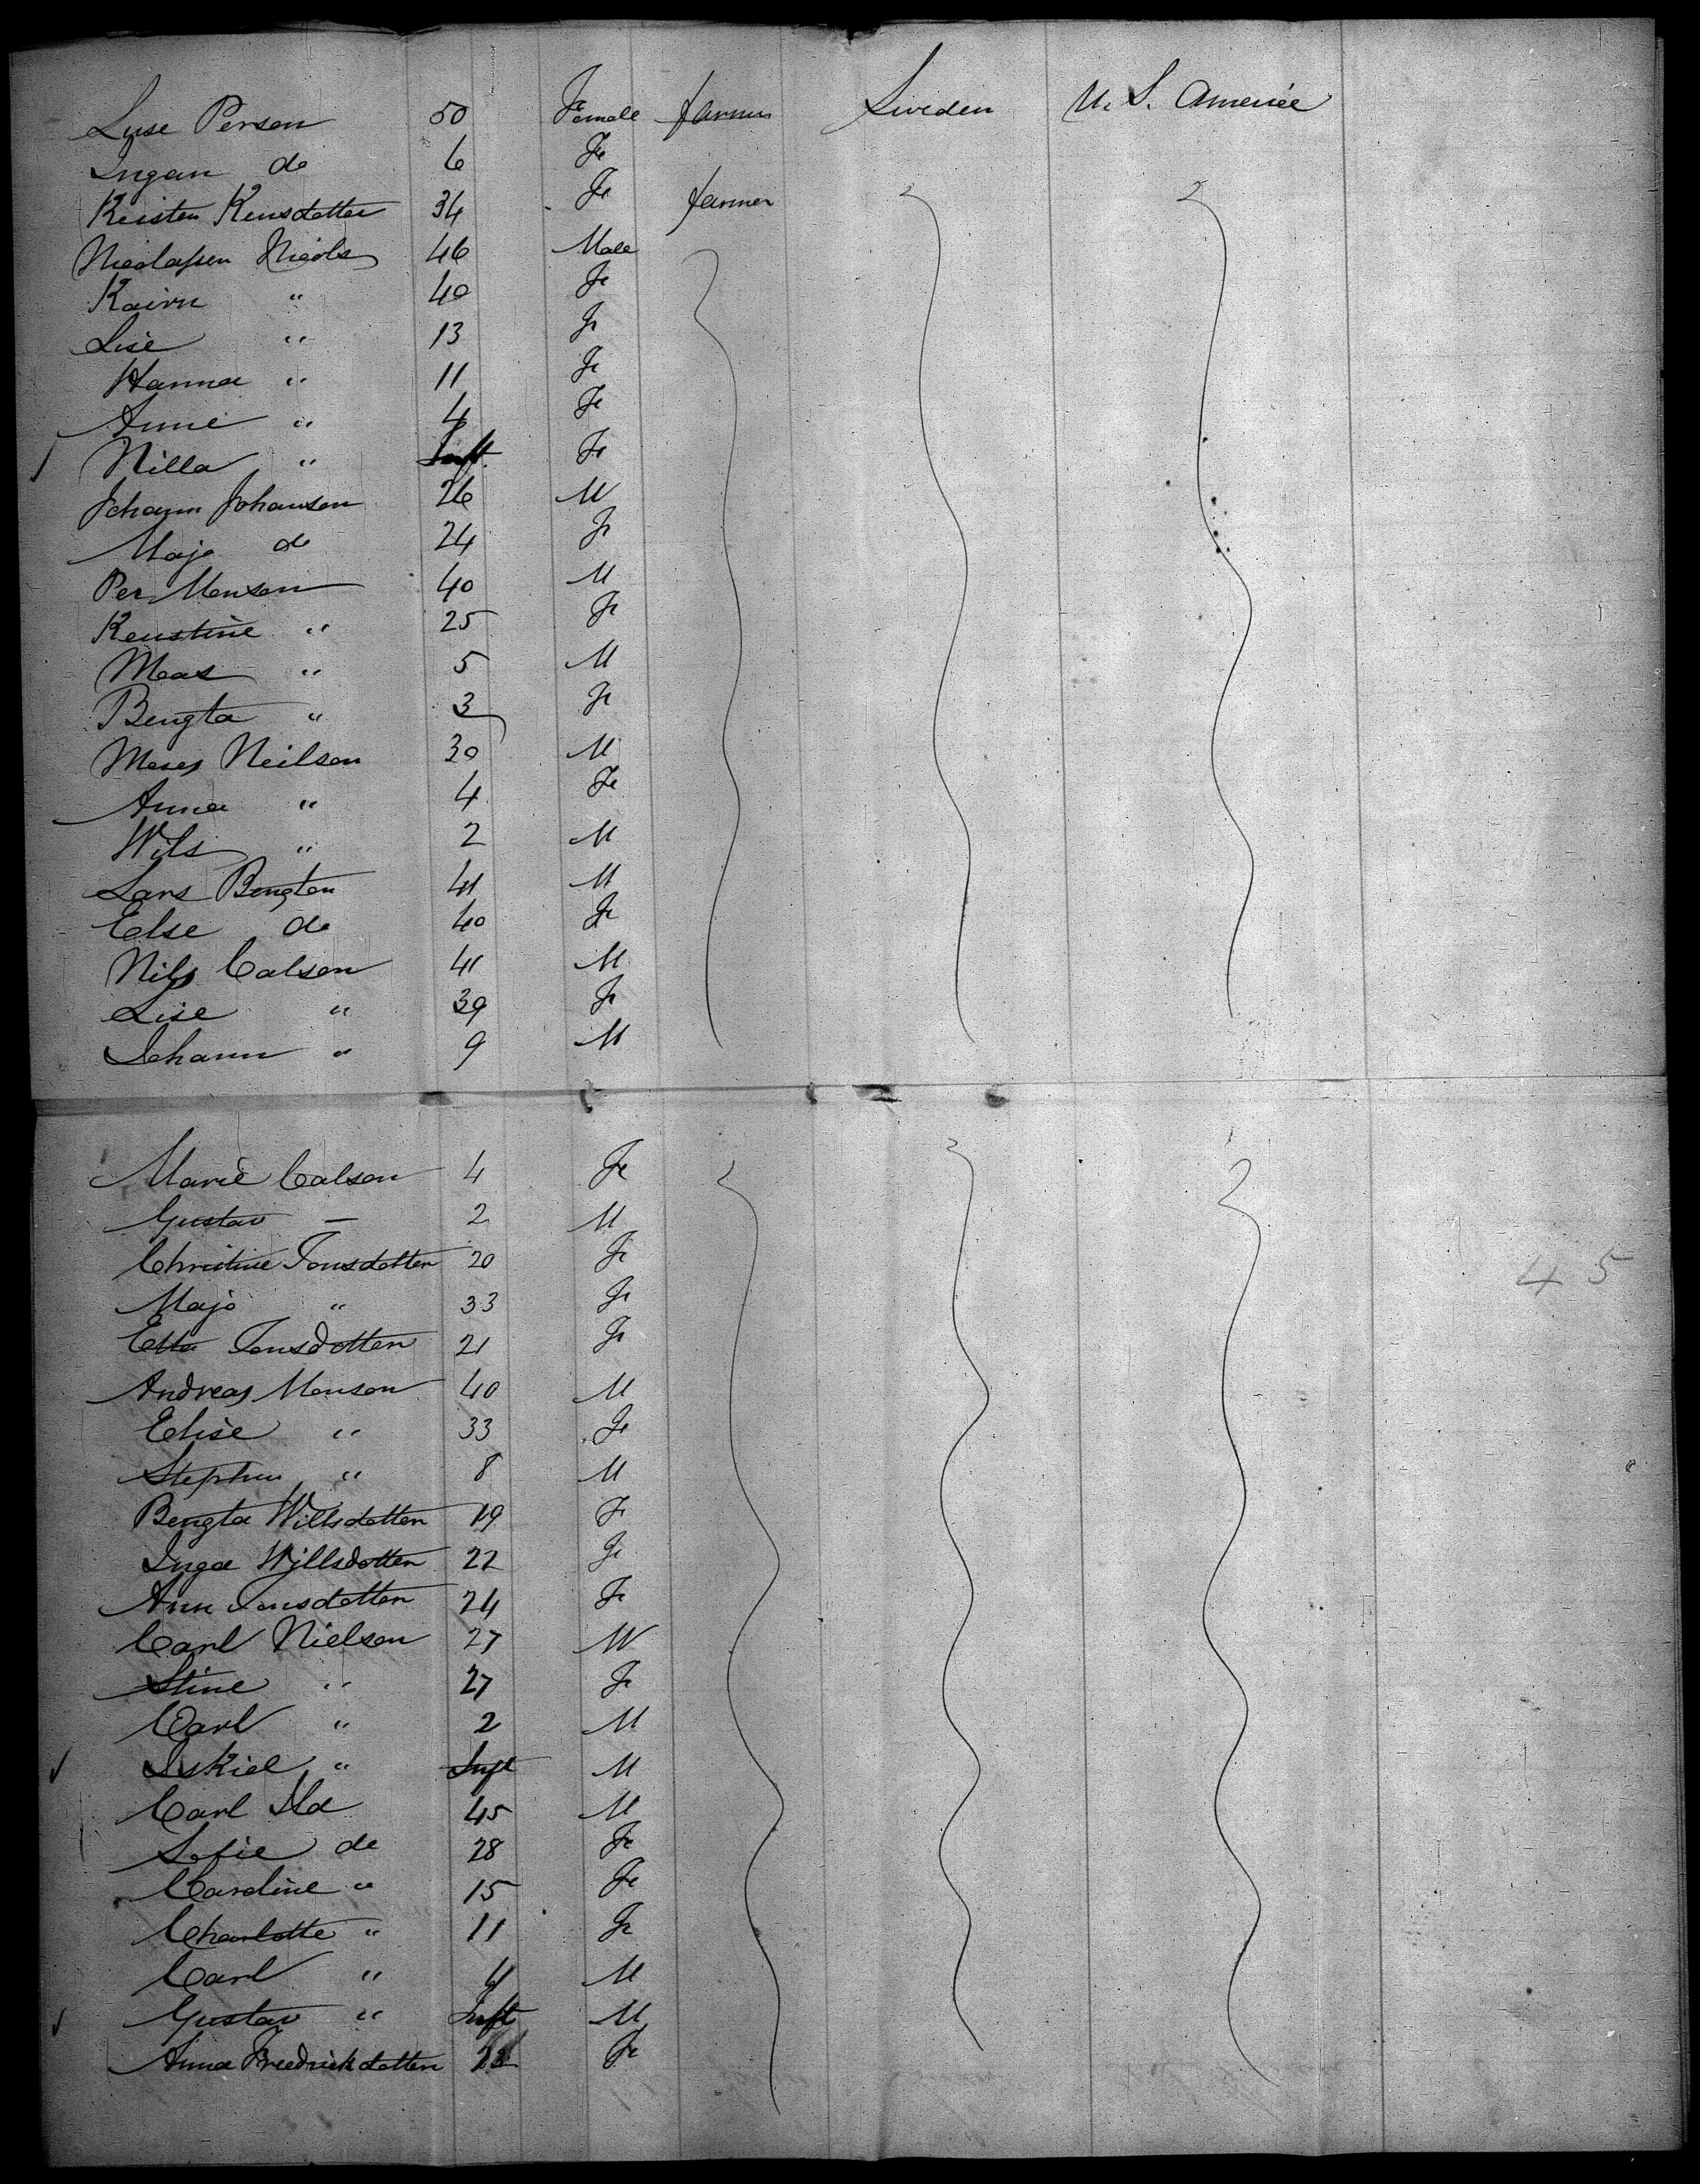 Luse Person 50 Female farmer Sweden U. S. Americe
Ingan do 6 Fe
Keisten Kensdotter 34 Fe farmer
Nicolassen Nicols 46 Male
Kairn " 40 Fe
Lise " 13 Fe
Hanna " 11 Fe
Anne " 4 Fe
Nilla " Inft. Fe
Johann Johansen 26 M
Maja do 24 Fe
Per Monson 40 M
Kenstine " 25 Fe
Moas " 5 M
Bengta " 3 Fe
Moses Neilson 30 M
Anna " 4 Fe
Wils " 2 M
Lars Bengten 41 M
Else do 40 Fe
Nils Calson 41 M
Lise " 39 Fe
Johann " 9 M
Marie Calson 4 Fe
Gustav — 2 M
Christine Tonsdotter 20 Fe
Majo " 33 Fe
Etta Tonsdotter 21 Fe
45
Andreas Monson 40 M
Elise " 33 Fe
Stephen " 8 M
Bengta Willsdotter 19 Fe
Inga Willsdotter 22 Fe
Ann Tonsdotter 24 Fe
Carl Nielson 27 M
Stine " 27 Fe
Carl " 2 M
Iskiel " Inft M
Carl 45 M
Sofie do 28 Fe
Caroline " 15 Fe
Charlotte " 11 Fe
Carl " 4 M
Gustav " Inft M
Anna Freedrickdotter Fe